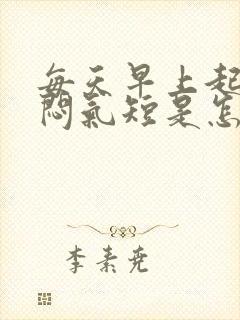 每天早上起
闷气短是怎
李素尧